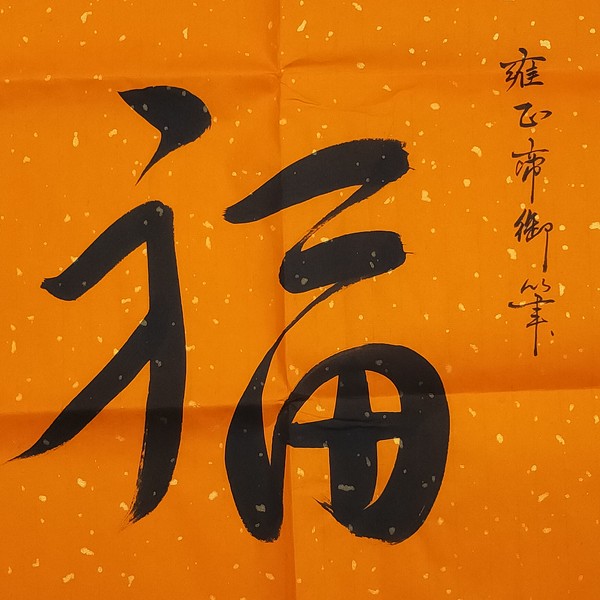 雍正帝御筆
福